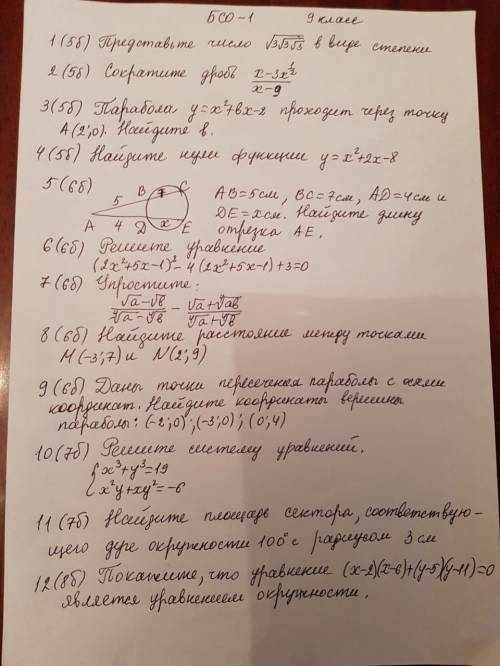 БСО-1 9 класс
1 (5б) Представьте число √3√3√3 в виде степени
2 (5б) Сократите дробь (x-3x^(1/2))/(x-9)
3 (5б) Парабола y=x²+bx-2 проходит через точку
A(2;0). Найдите b.
4 (5б) Найдите нули функции y=x²+2x-8
5 (6б)
A 5 B 7 C
4 D x E
AB=5см, BC=7см, AD=4см и
DE=xсм. Найдите длину
отрезка AE.
6 (6б) Решите уравнение
(2x²+5x-1)²-4(2x²+5x-1)+3=0
7 (6б) Упростите:
(√a-√b)/(∜a-∜b) - (√a+∜ab)/(∜a+∜b)
8 (6б) Найдите расстояние между точками
M(-3;7) и N(2;9)
9 (6б) Даны точки пересечения параболы с осями
координат. Найдите координаты вершины
параболы: (-2;0);(-3;0); (0;4)
10 (7б) Решите систему уравнений.
{x³+y³=19
x²y+xy²=-6
11 (7б) Найдите площадь сектора, соответствую-
щего дуге окружности 100° с радиусом 3 см
12 (8б) Покажите, что уравнение (x-2)(x-6)+(y-5)(y-11)=0
является уравнением окружности.